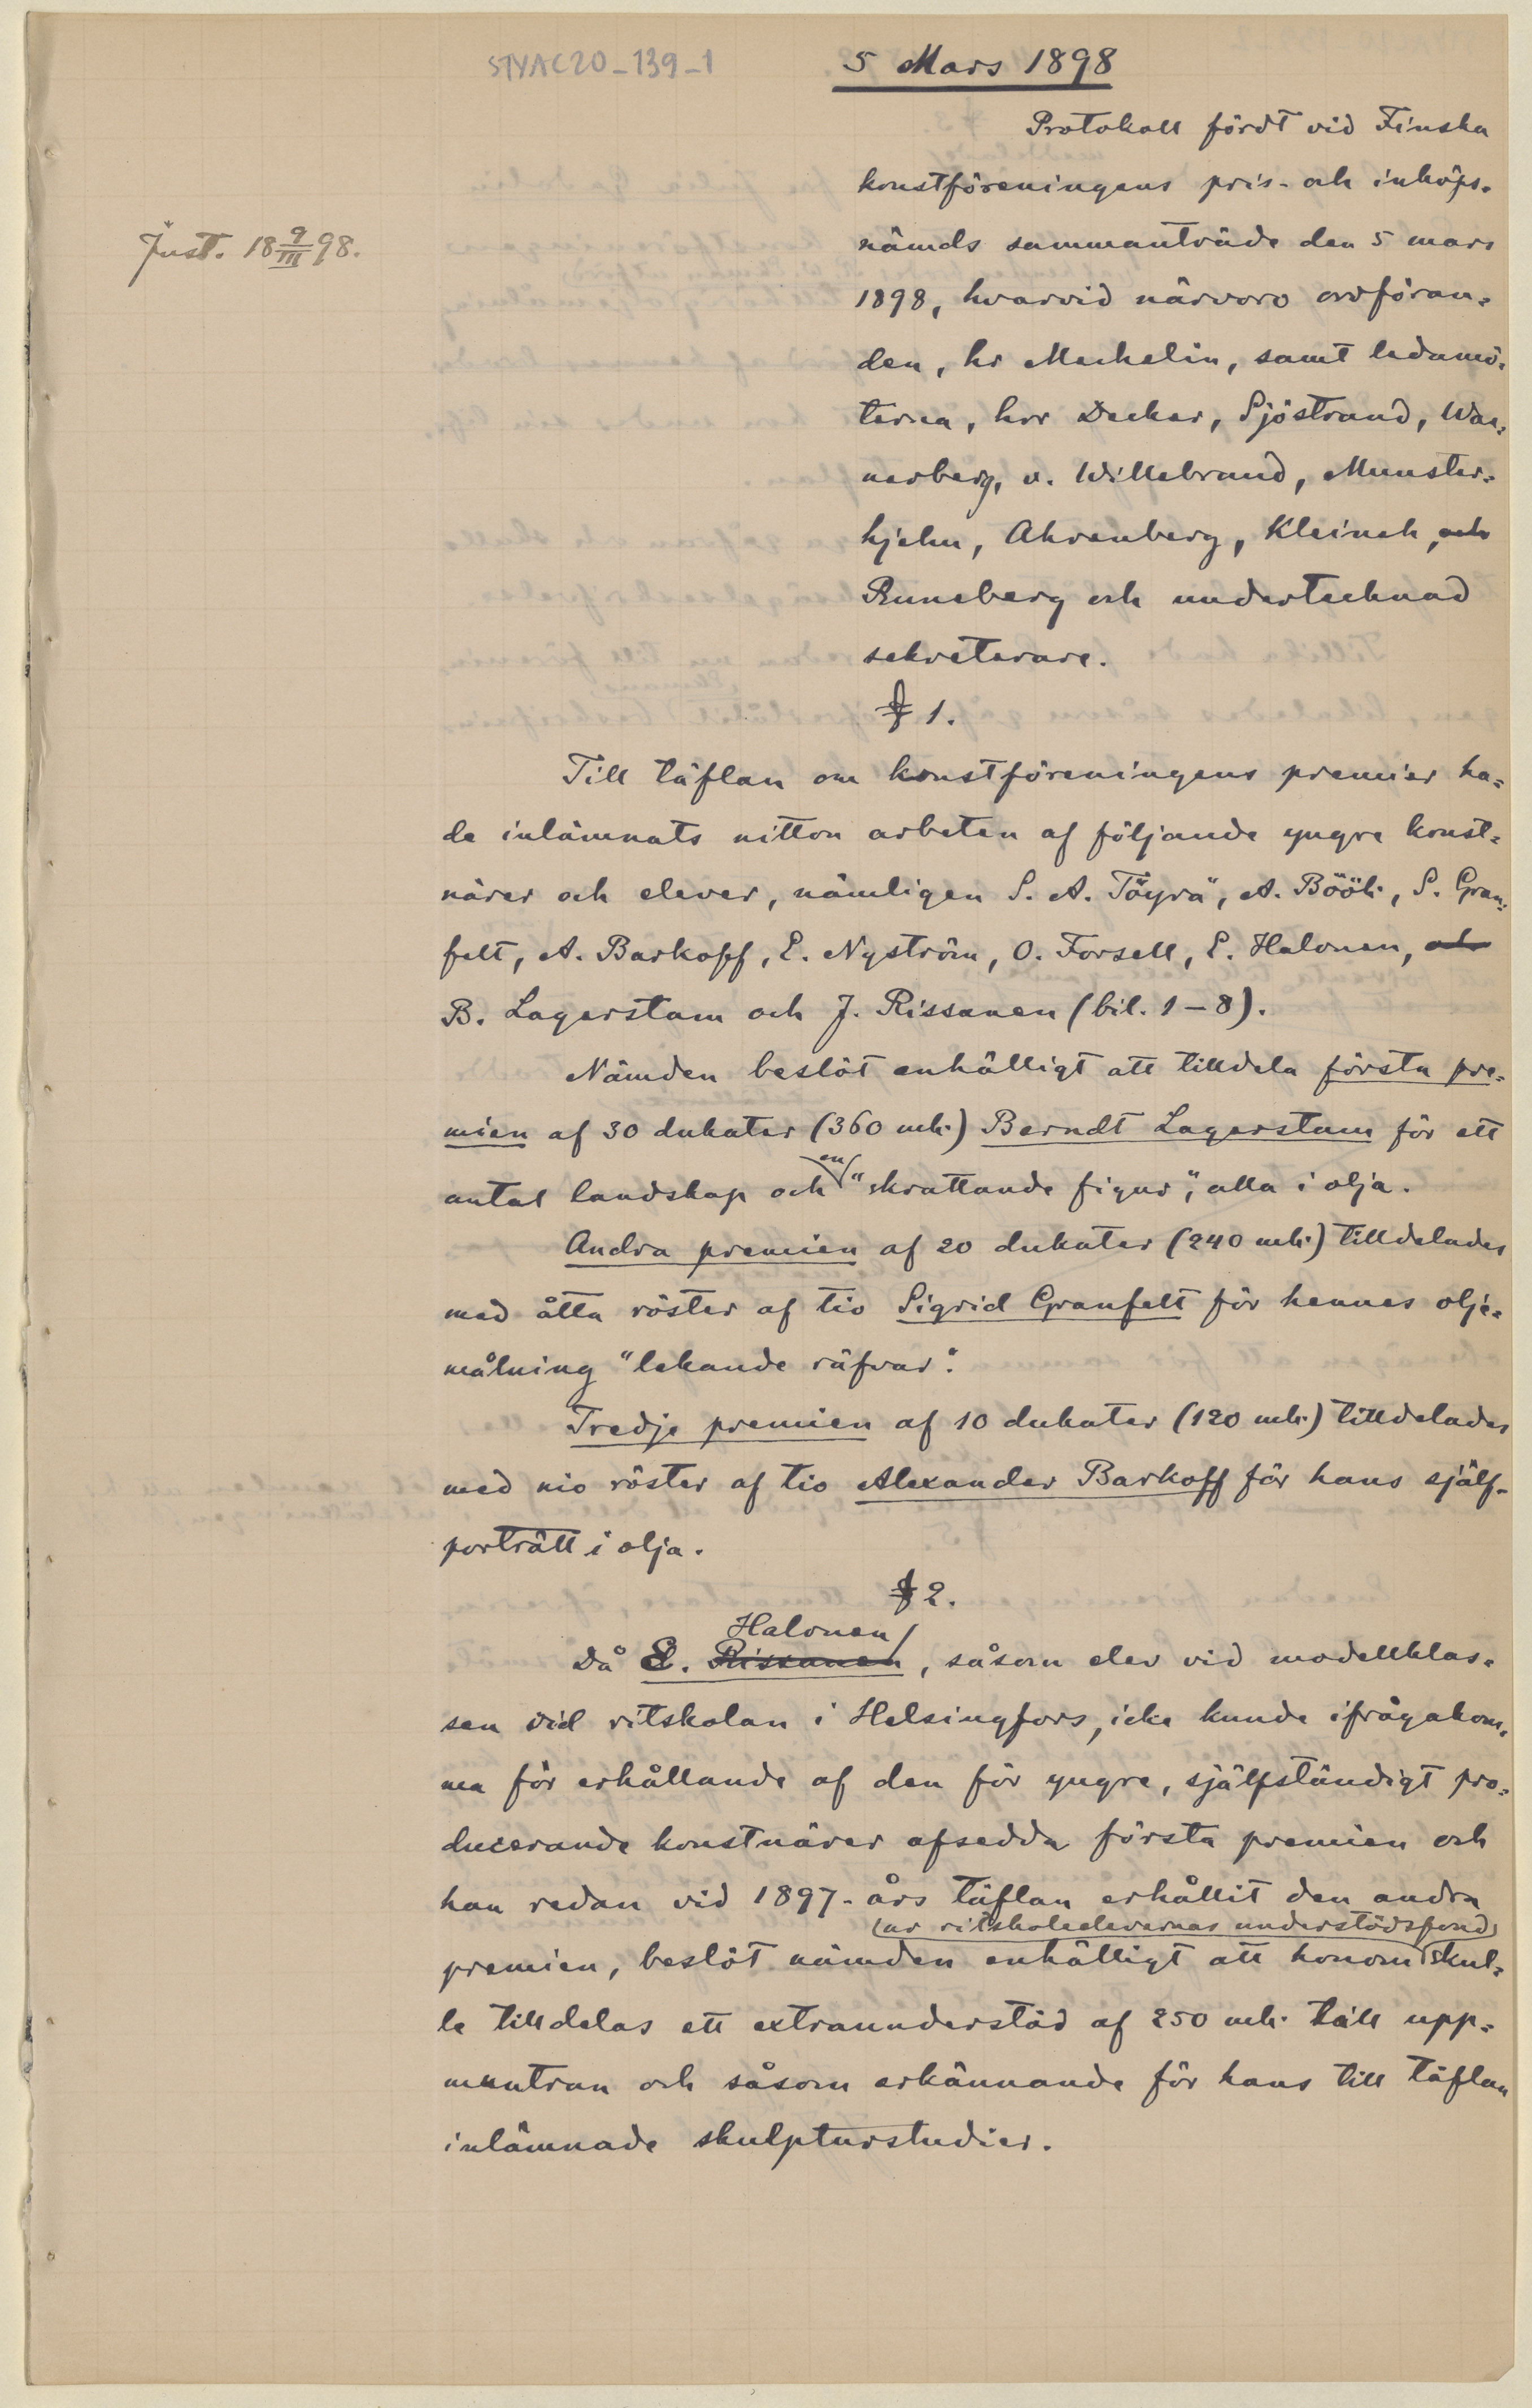 STYAC20-139-1
5 Mars 1898
Protokoll fördt vid Finska
konstföreningens pris- och inköps-
nämds sammanträde den 5 mars
Just. 18 9/III 98.
1898, hvarvid närvoro ordföran-
den, hr Mechelin, samt ledamö-
terna, hrr Decker, Sjöstrand, Wae-
nerberg, v. Willebrand, Munster-
hjelm, Ahrenberg, Kleineh, och
Runeberg och undertecknad
sekreterare.
§ 1.
Till täflan om konstföreningens premier ha-
de inlämnats nitton arbeten af följande yngre konst-
närer och elever, nämligen S. A. Töyrä, A. BööK, S. Gran-
felt, A. Barkoff, E. Nyström, O. Forsell, E. Halonen, och
B. Lagerstam och J. Rissanen (bil. 1-8).
Nämden beslöt enhälligt att tilldela första pre-
mien af 30 dukater (360 mk.) Berndt Lagerstam för ett
en
antal landskap och "skrattande figur", alla i olja.
Andra premien af 20 dukater (240 mk.) tilldelades
med åtta röster af tio Sigrid Granfelt för hennes olje-
målning "lekande räfvar".
Tredje premien af 10 dukater (120 mk.) tilldelades
med nio röster af tio Alexander Barkoff för hans själf-
porträtt i olja.
§ 2.
Halonen
Då E. Rissanen, såsom elev vid modellklas-
sen vid ritskolan i Helsingfors, icke kunde ifrågakom-
ma för erhållande af den för yngre, själfständigt pro-
ducerande konstnärer afsedda första premien och
han redan vid 1897-års täflan erhållit den andra
ur ritskoleelevernas understödsfond
premien, beslöt nämden enhälligt att honom skul-
le tilldelas ett extraunderstöd af 250 mk. till upp-
muntran och såsom erkännande för hans till täflan
inlämnade skulpturstudier.